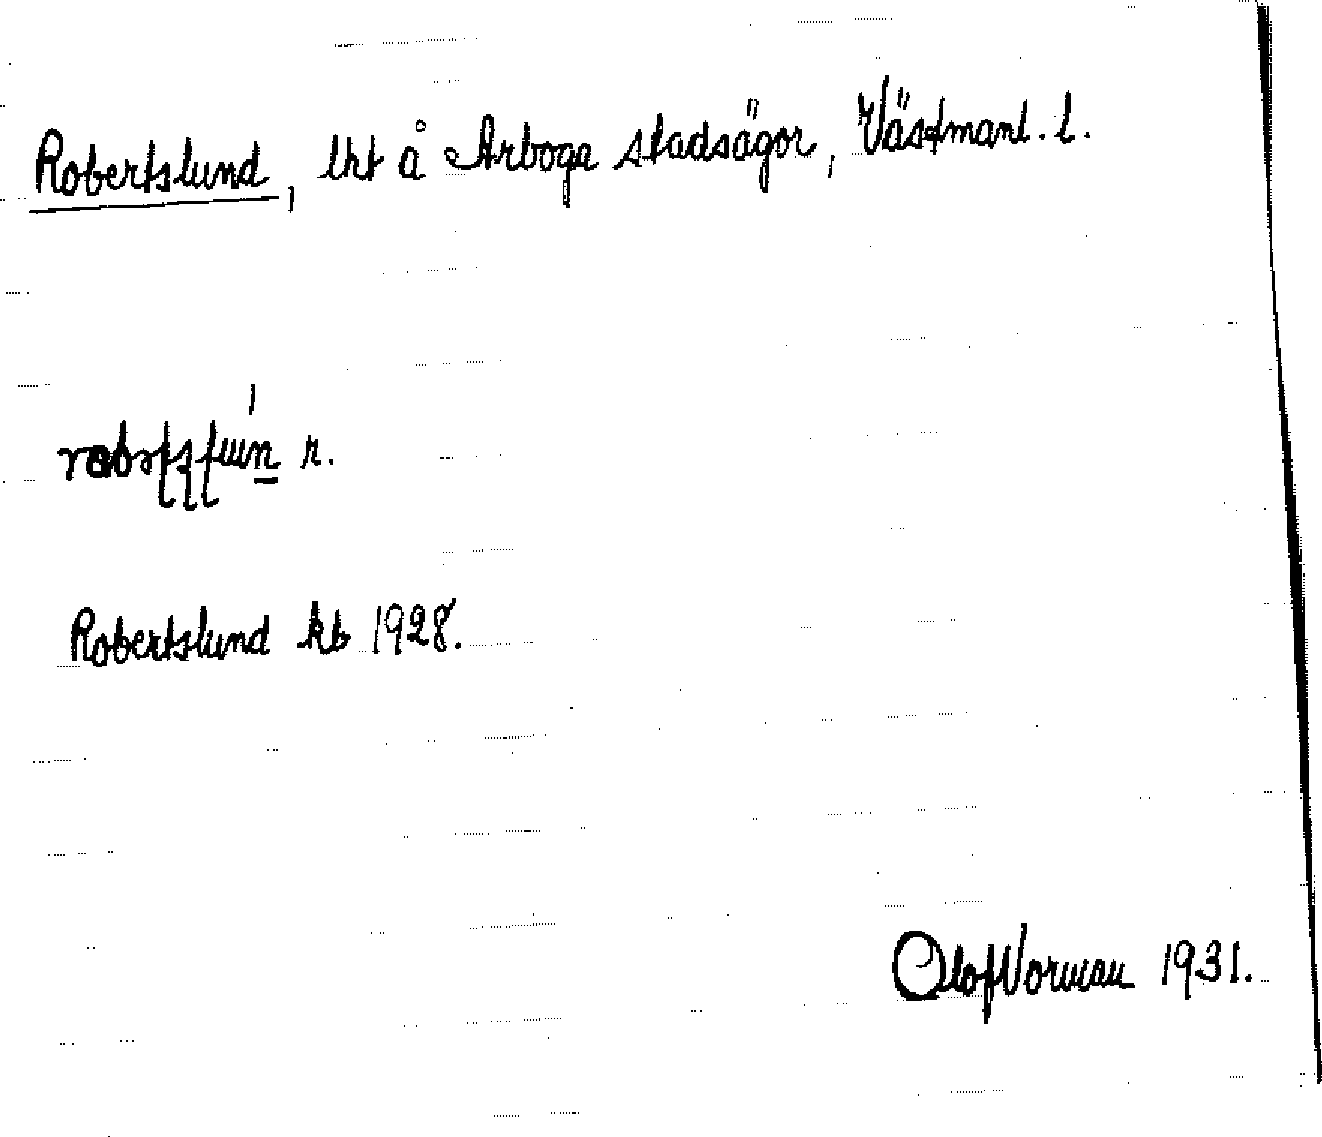 Robertslund, lht å Arboga stadsägor, Västmanl. l.
n.
Robertslund kb 1928.
Olof Norman 1931.